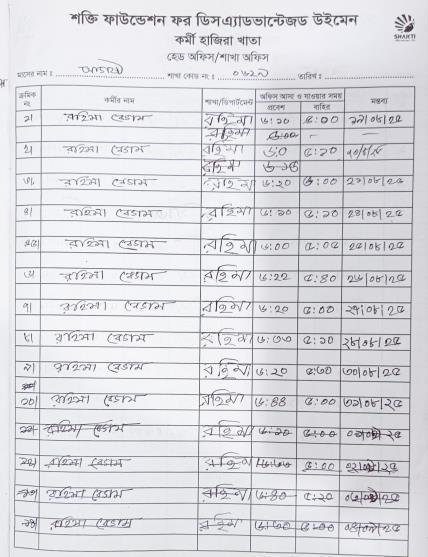 শক্তি ফাউন্ডেশন ফর ডিসএ্যাডভান্টেজড উইমেন
কর্মী হাজিরা খাতা
হেড অফিস/শাখা অফিস
SHAKTI
মাসের নাম : শাখা কোড নং : তারিখ :
ক্রমিক নং কর্মীর নাম শাখা/ডিপার্টমেন্ট অফিস আসা ও যাওয়ার সময় মন্তব্য
প্রবেশ বাহির
১। রহিমা বেগম রহিমা ৬:১০ ৫:০০ ১৯/০৮/২৫
রহিমা ৬:০০ –  –
২। রহিমা বেগম রহিমা ৫:১০
রহিমা
৩। রহিমা বেগম রহিমা ৬:২০ ৬:০০ ২১/০৮/২৫
৪। রহিমা বেগম রহিমা ৬:১০ ৫:১০ ২৪/০৮/২৫
রহিমা বেগম রহিমা ৬:০০ ৫:০৫ ২৫/০৮/২৫
৬। রহিমা বেগম রহিমা ৬:২২ ৫:৪০ ২৬/০৮/২৫
৭। রহিমা বেগম রহিমা ৬:২০ ৫:০০ ২৭/০৮/২৫
৮। রহিমা বেগম রহিমা ৬:৩০ ৫:১০ ২৮/০৮/২৫
৯। রহিমা বেগম রহিমা ৬:২০ ৫:৩০ ৩০/০৮/২৫
১০। রহিমা বেগম রহিমা ৬:৪৪ ৫:০০ ৩১/০৮/২৫
রহিমা বেগম রহিমা ৬:১০ ৫:০০
১২। রহিমা বেগম রহিমা ৫:০০
১৩। রহিমা বেগম রহিমা ৬:৪০ ৫:২০
১৪। রহিমা বেগম রহিমা ৬:৩০ ৫:০০